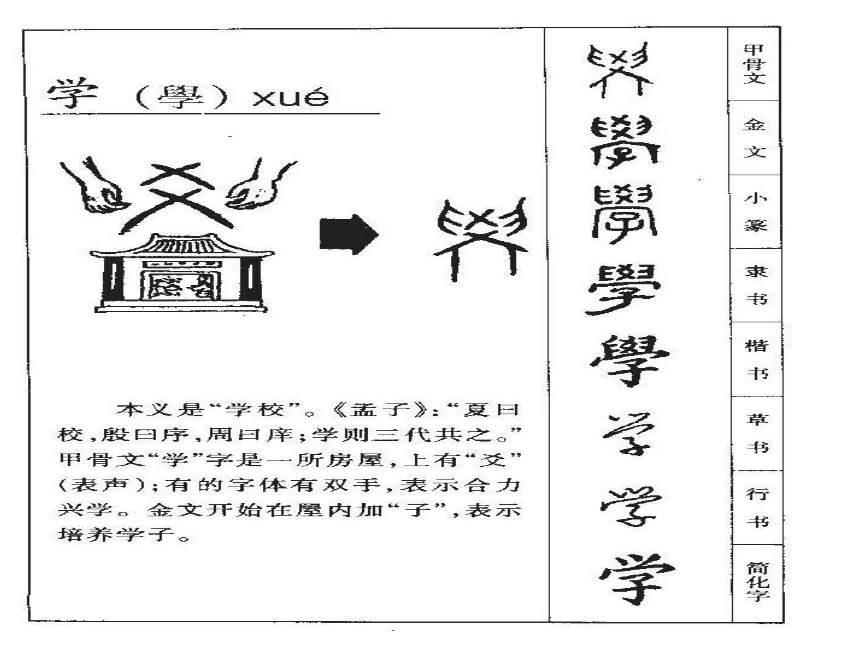 学（學）xué
本义是“学校”。《孟子》：“夏曰
校，殷曰序，周曰庠；学则三代共之。”
甲骨文“学”字是一所房屋，上有“爻”
（表声）；有的字体有双手，表示合力
兴学。金文开始在屋内加“子”，表示
培养学子。
學 甲骨文
學 金文
學 小篆
學 隶书
學 楷书
学 草书
学 行书
学 简化字